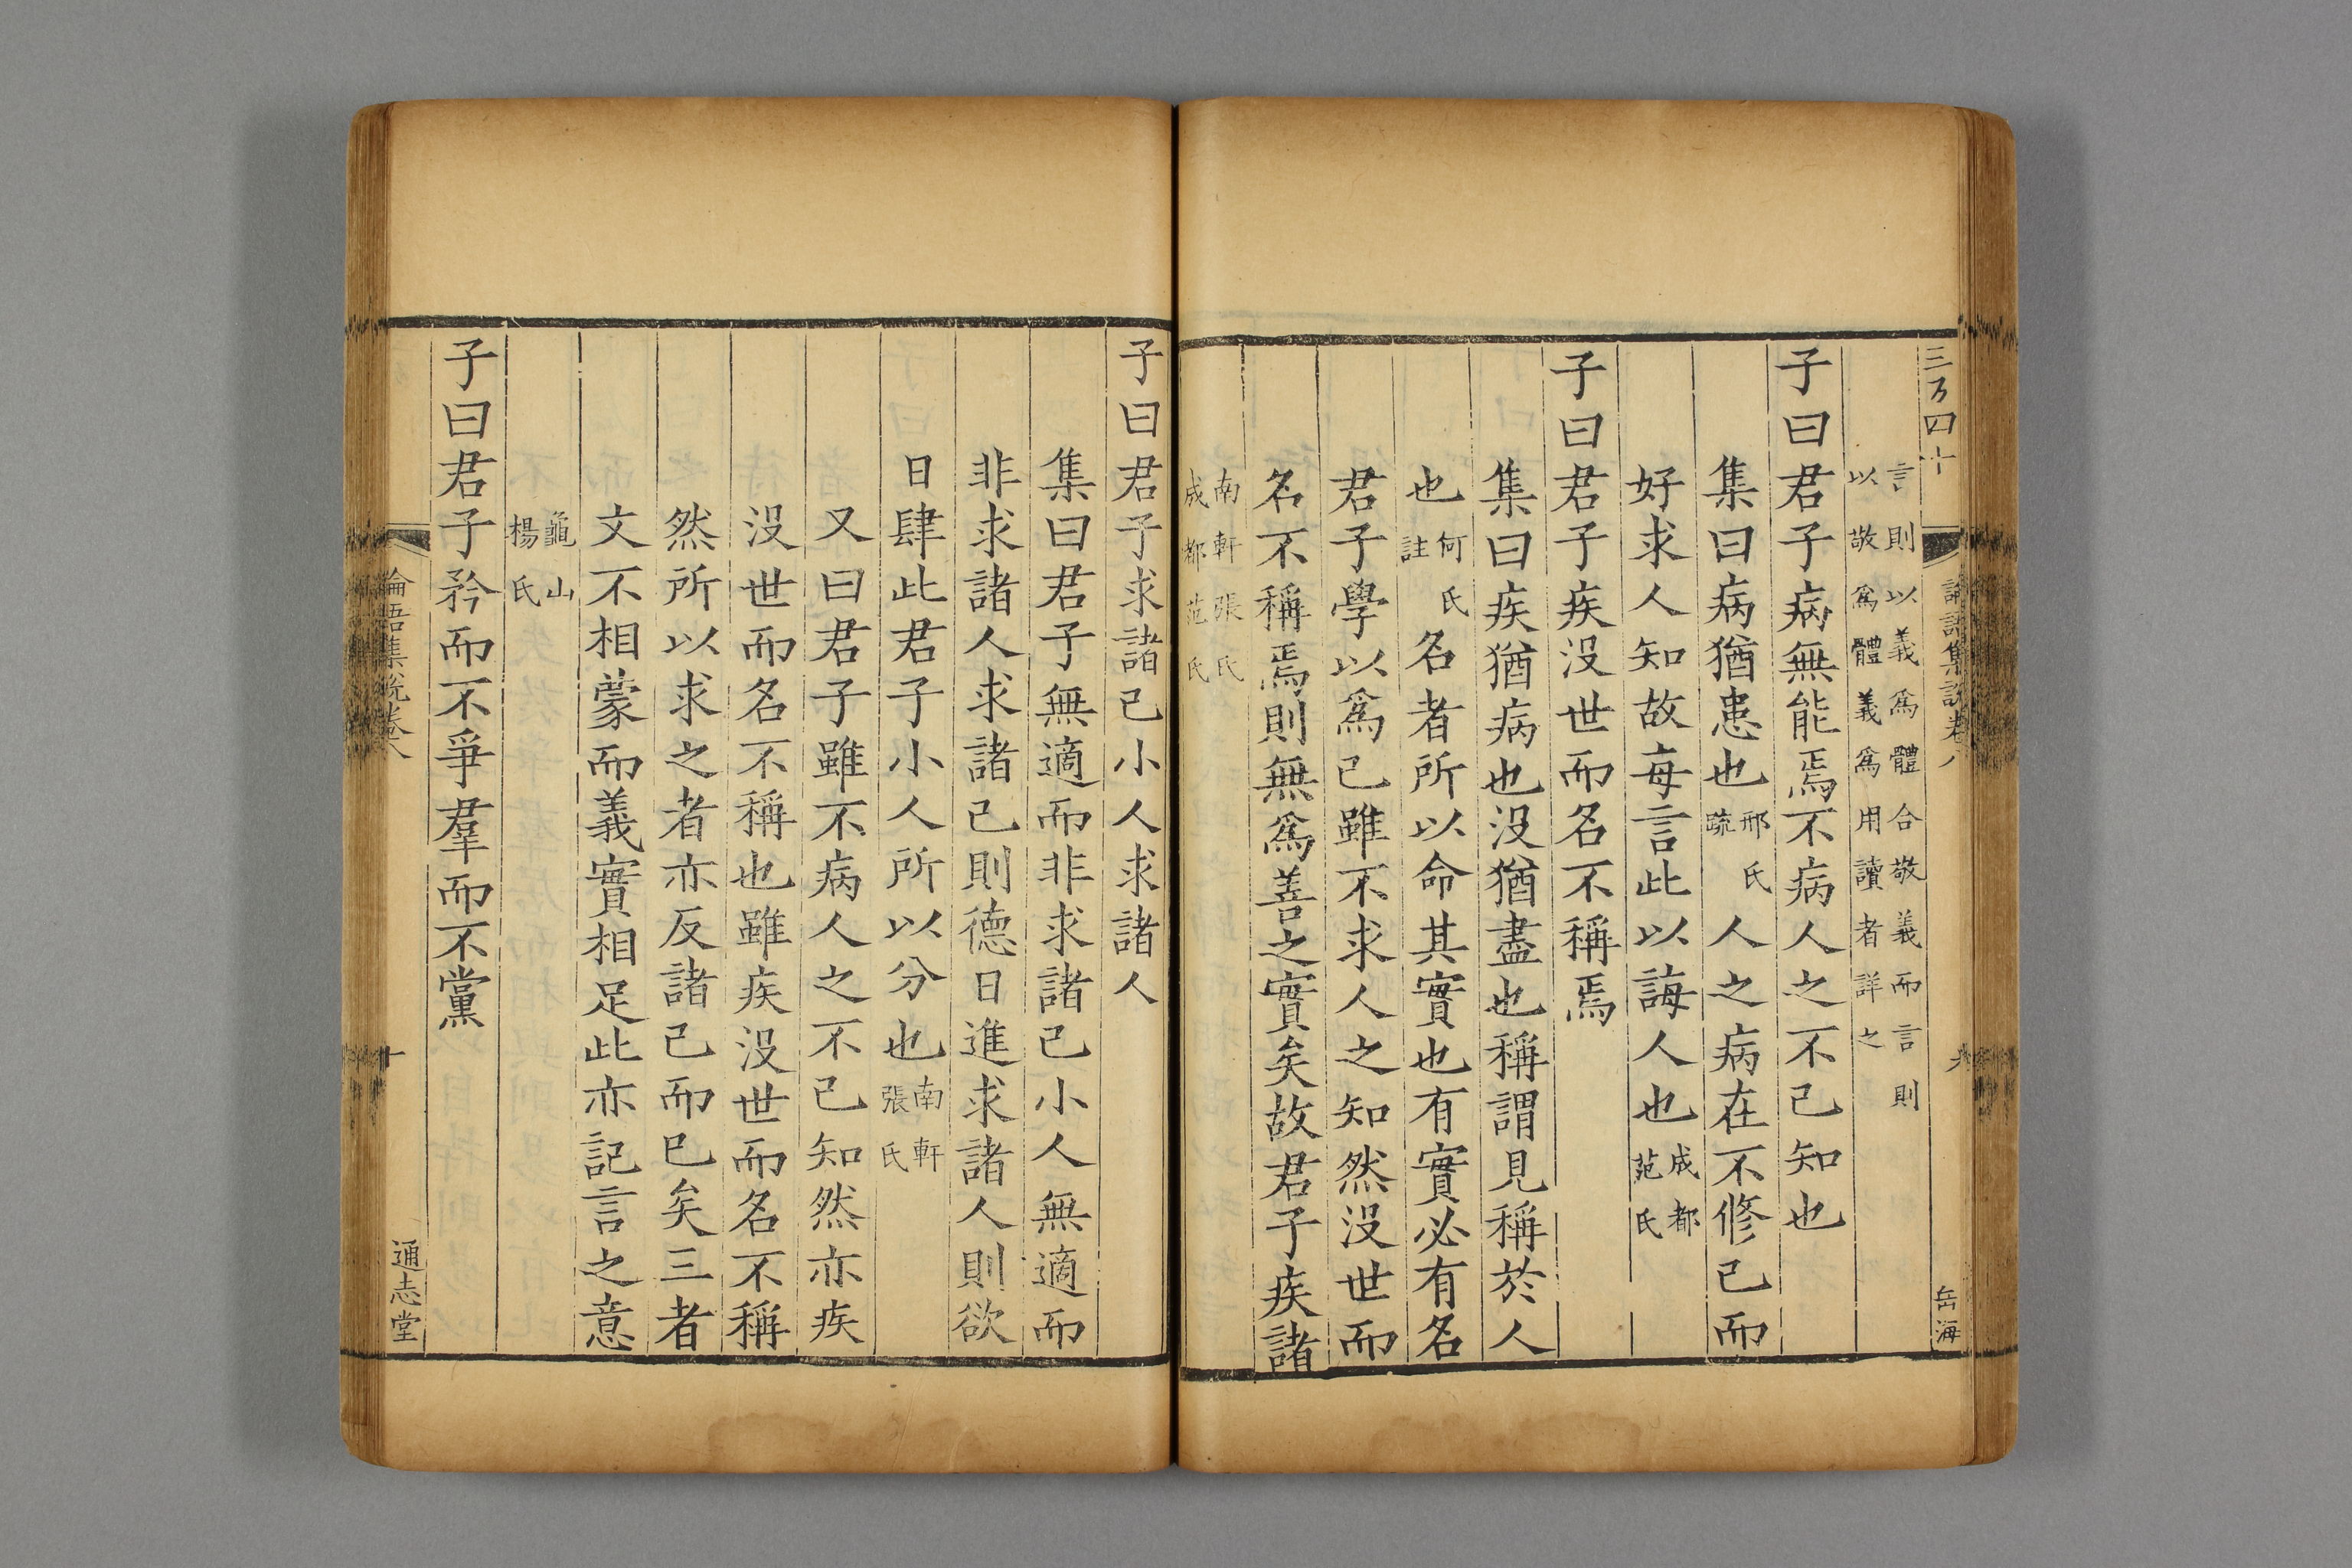 三百四十
論語集說卷八
九
岳海
言則以義爲體合敬義而言則
以敬爲體義爲用讀者詳之
子曰君子病無能焉不病人之不己知也
集曰病猶患也邢氏疏人之病在不修己而
好求人知故每言此以誨人也成都范氏
子曰君子疾没世而名不稱焉
集曰疾猶病也没猶盡也稱謂見稱於人
也何氏註名者所以命其實也有實必有名
君子學以爲己雖不求人之知然没世而
名不稱焉則無爲善之實矣故君子疾諸
南軒張氏
成都范氏
子曰君子求諸己小人求諸人
集曰君子無適而非求諸己小人無適而
非求諸人求諸己則德日進求諸人則欲
日肆此君子小人所以分也南軒張氏
又曰君子雖不病人之不己知然亦疾
没世而名不稱也雖疾没世而名不稱
然所以求之者亦反諸己而已矣三者
文不相蒙而義實相足此亦記言之意
龜山楊氏
子曰君子矜而不爭羣而不黨
論語集說卷八
十
通志堂